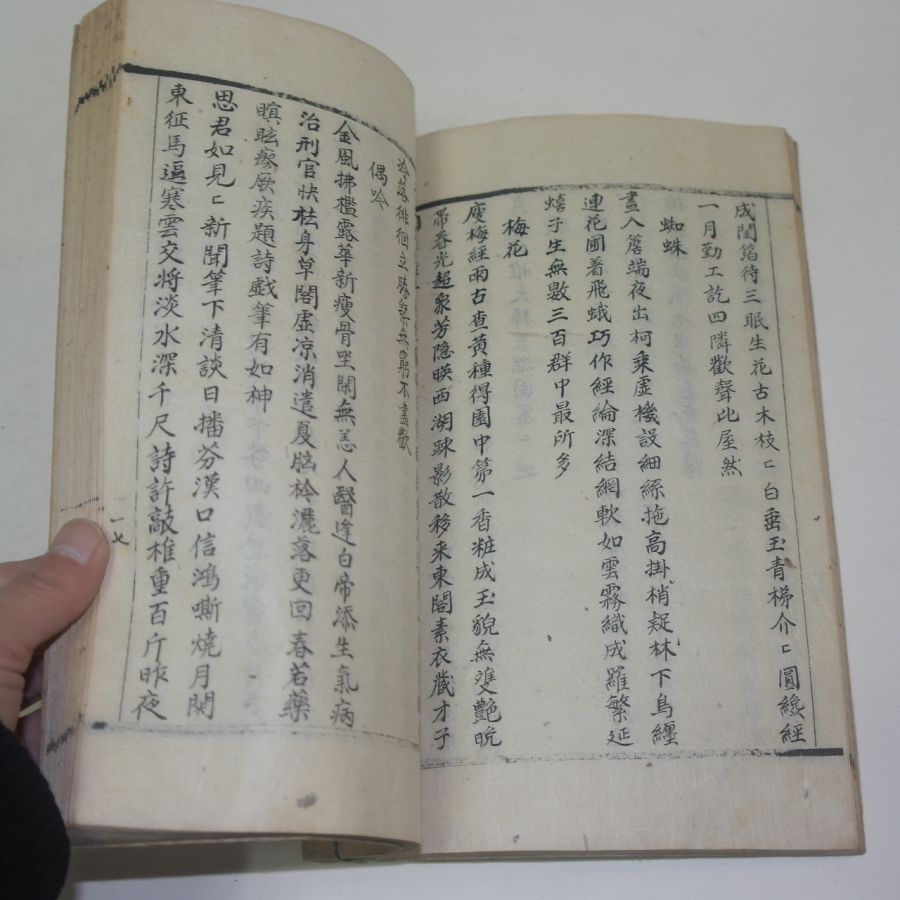 成閨箔待三眠生花古木枝〻白垂玉青梯介〻圓繞經
一月勤工訖四隣歡聲比屋然
蜘蛛
晝入簷端夜出柯乘虛機設細絲拖高掛梢疑林下鳥纏
連花圃着飛蛾巧作經綸深結網軟如雲霧織成羅繁延
蟢子生無數三百群中最所多
梅花
廋梅經雨古查黃種得園中第一香粧成玉貌無雙艶晩
帯春光超衆芳隐映西湖踈影散移来東閣素衣藏才子
冷落徘徊立勝景無窮不盡歡
偶吟
金風拂檻露華新瘦骨坐閑無恙人醫逢白帝添生氣病
治刑官快祛身草閣虛凉消遣夏脇衿灑落更回春若藥
瞑眩瘳厥疾題詩戱筆有如神
思君如見〻新聞筆下清談日播芬漢口信鴻嘶燒月関
東征馬逼寒雲交將淡水深千尺詩許敲椎重百斤昨夜
一七